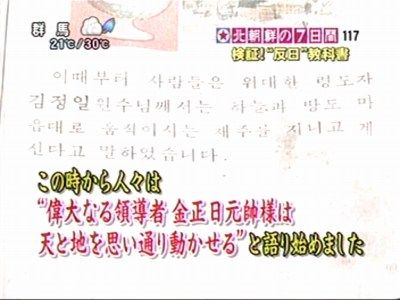 群馬
21℃/30℃
★北朝鮮の7日間 117
検証!“反日”教科書
이때부터 사람들은 위대한 령도자
김정일원수님께서는 하늘과 땅도 마
음대로 움직이시는 재주를 지니고 계
신다고 말하였습니다.
この時から人々は
“偉大なる領導者 金正日元帥様は
天と地を思い通り動かせる”と語り始めました